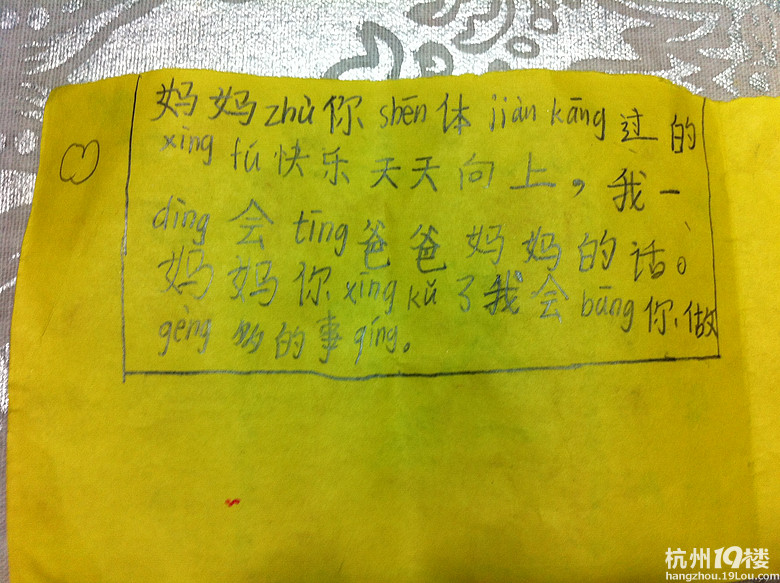 妈妈zhù你shēn体jiàn kāng过的
xìng fú快乐天天向上，我一
dìng会tīng爸爸妈妈的话。
妈妈你xīng kǔ了我会bāng你、做
gèng多的事qíng。
杭州19楼
hangzhou.19lou.com